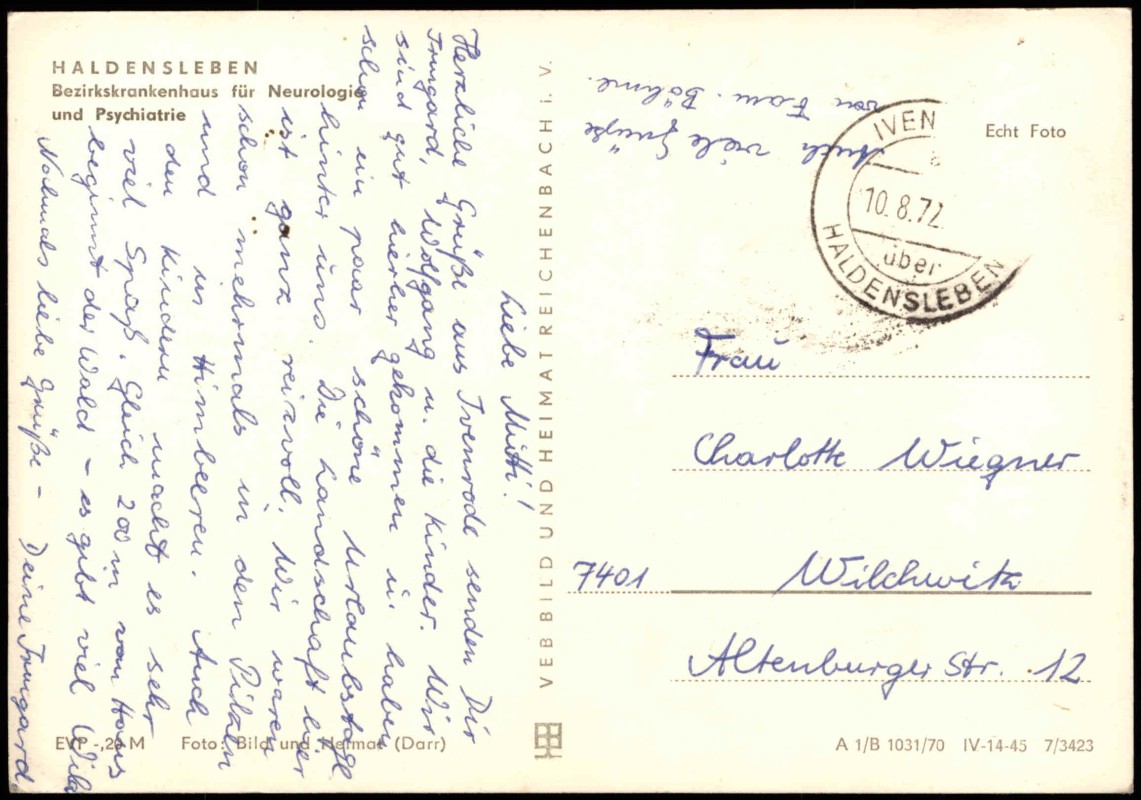 HALDENSLEBEN
Bezirkskrankenhaus für Neurologie
und Psychiatrie
Liebe Mutti!
Herzliche Grüße aus Ivenrode senden Dir
Irmgard, Wolfgang u. die Kinder. Wir
sind gut hierher gekommen u. haben
schon ein paar schöne Urlaubstage
hinter uns. Die Landschaft hier
ist ganz reizvoll. Wir waren
schon mehrmals in den Pilzen
und in Himbeeren. Auch
den Kindern macht es sehr
viel Spaß. Gleich 200 m vom Haus
beginnt der Wald – es gibt viel Wild
Nochmals liebe Grüße – Deine Irmgard.
EVP -,20 M
Foto: Bild und Heimat (Darr)
VEB BILD UND HEIMAT REICHENBACH i. V.
Auch viele Grüße
von Frau. Böhme.
IVEN
10.8.72
über
HALDENSLEBEN
Echt Foto
Frau
Charlotte Wiegner
7401 Wilchwitz
Altenburger Str. 12
A 1/B 1031/70 IV-14-45 7/3423